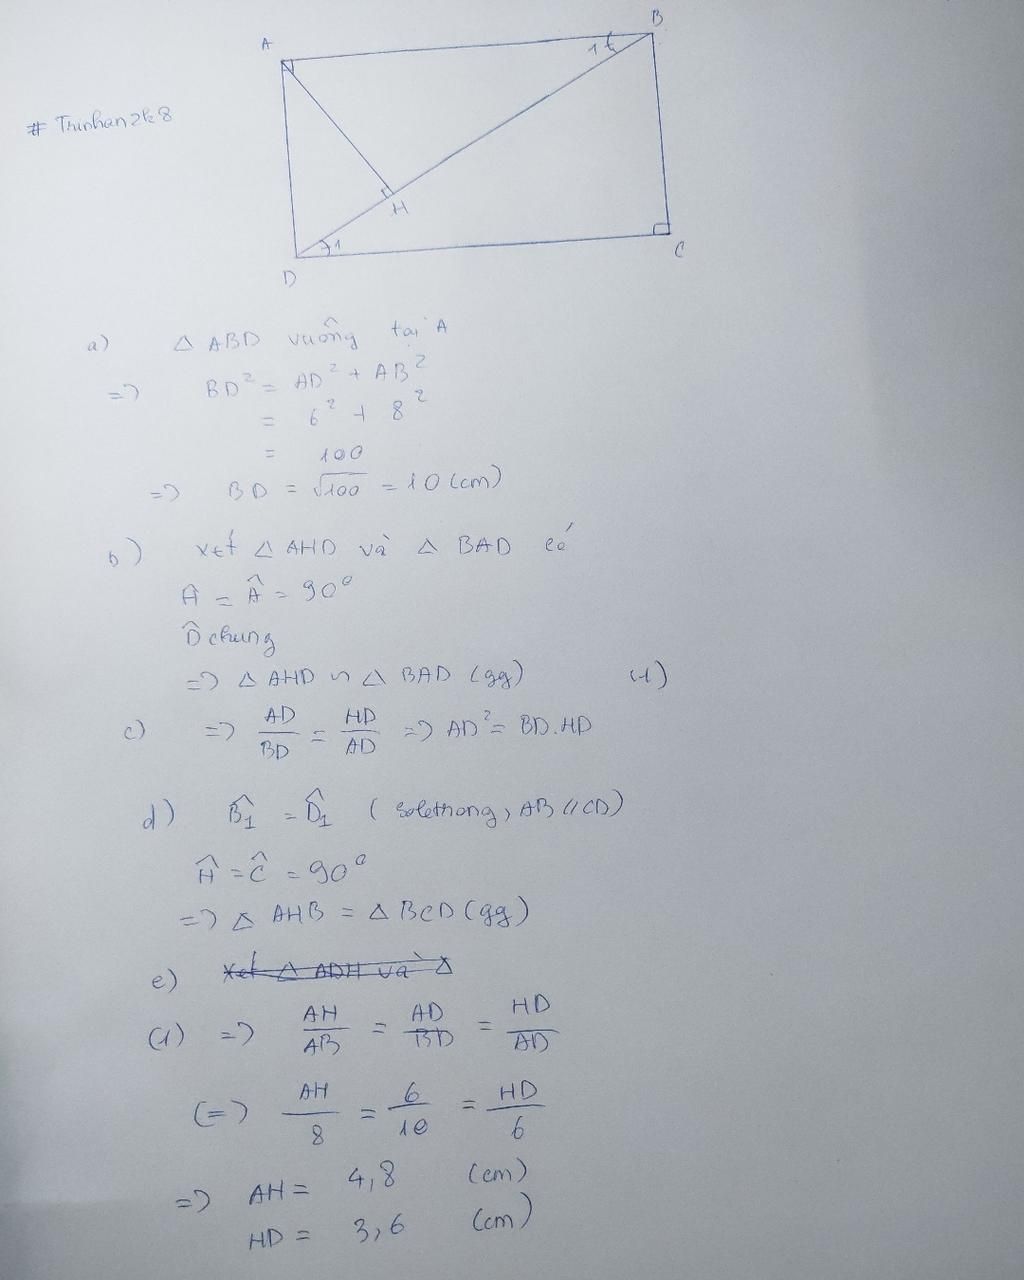 A
B
1
# Trinhan2k8
H
1
D
C
a) △ ABD vuông tại A
=> BD² = AD² + AB²
= 6² + 8²
= 100
=> BD = √100 = 10 (cm)
b) Xét △ AHD và △ BAD có
Ĥ = Â = 90°
D̂ chung
=> △ AHD ∽ △ BAD (gg) (1)
c) => AD/BD = HD/AD => AD² = BD.HD
d) B̂₁ = D̂₁ ( soletrong, AB // CD)
Ĥ = Ĉ = 90°
=> △ AHB = △ BCD (gg)
e) Xét △ ADH và △
(1) => AH/AB = AD/BD = HD/AD
(=) AH/8 = 6/10 = HD/6
=> AH = 4,8 (cm)
HD = 3,6 (cm)